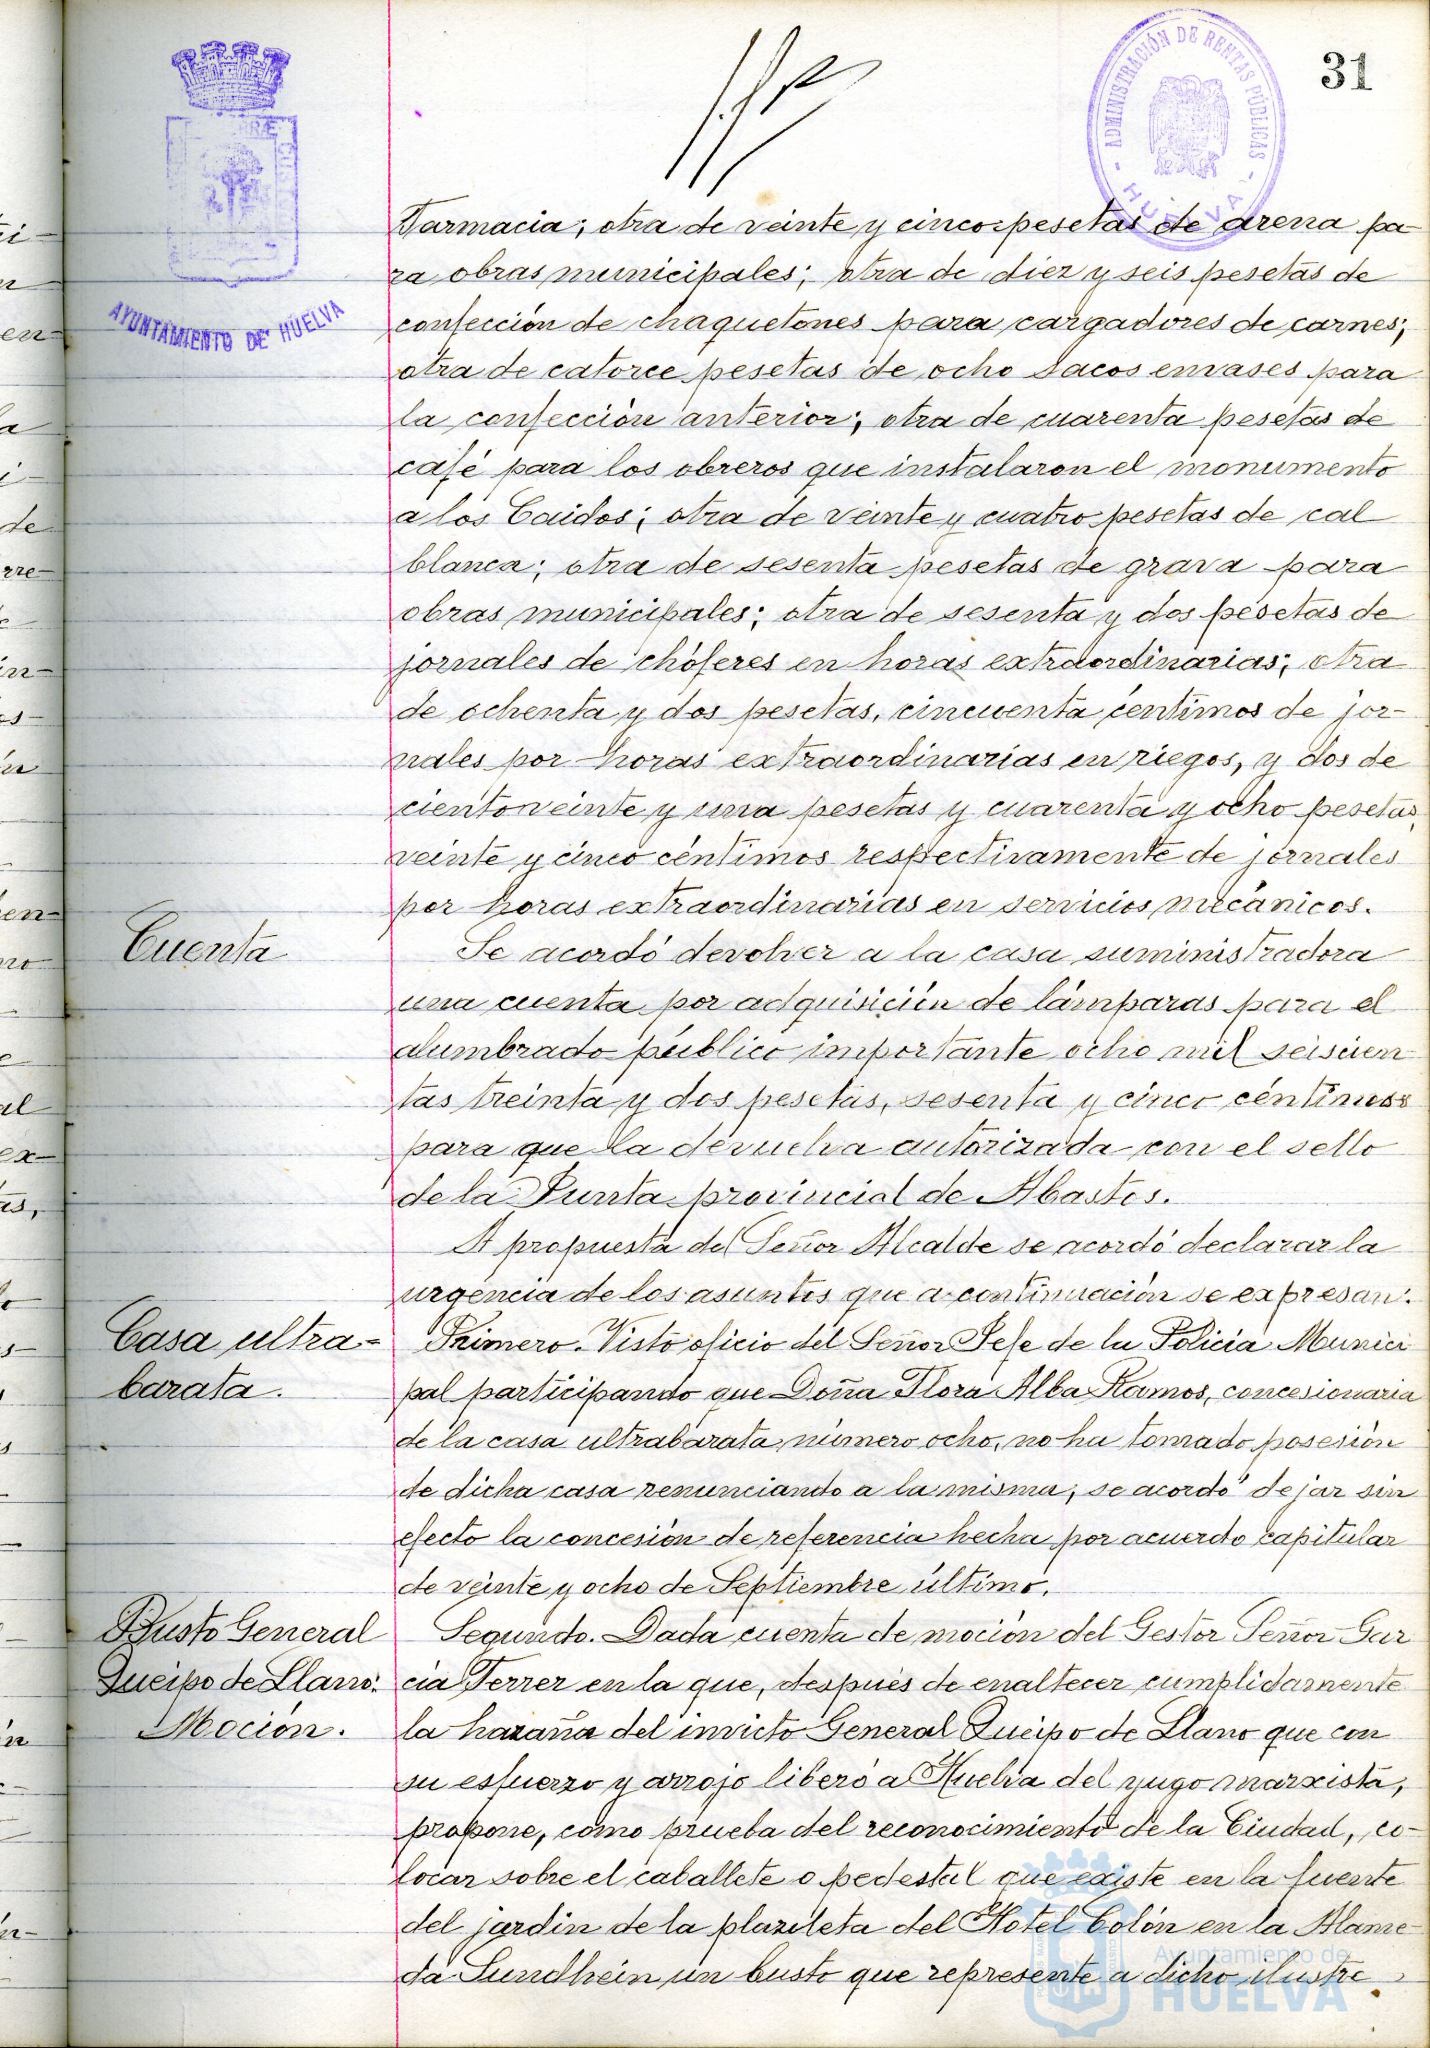 31
ADMINISTRACIÓN DE RENTAS PÚBLICAS
HUELVA
AYUNTAMIENTO DE HUELVA
Farmacia; otra de veinte y cinco pesetas de arena pa-
ra obras municipales; otra de diez y seis pesetas de
confección de chaquetones para cargadores de carnes;
otra de catorce pesetas de ocho sacos envases para
la confección anterior; otra de cuarenta pesetas de
café para los obreros que instalaron el monumento
a los Caidos; otra de veinte y cuatro pesetas de cal
blanca; otra de sesenta pesetas de grava para
obras municipales; otra de sesenta y dos pesetas de
jornales de chóferes en horas extraordinarias; otra
de ochenta y dos pesetas, cincuenta céntimos de jor-
nales por horas extraordinarias en riegos, y dos de
ciento veinte y una pesetas y cuarenta y ocho pesetas,
veinte y cinco céntimos respectivamente de jornales
por horas extraordinarias en servicios mecánicos.
Cuenta
Se acordó devolver a la casa suministradora
una cuenta por adquisición de lámparas para el
alumbrado público importante ocho mil seiscien
tas treinta y dos pesetas, sesenta y cinco céntimos
para que la devuelva autorizada con el sello
de la Junta provincial de Abastos.
A propuesta del Señor Alcalde se acordó declarar la
urgencia de los asuntos que a continuación se expresan:
Casa ultra=
barata.
Primero. Visto oficio del Señor Jefe de la Policia Munici
pal participando que Doña Flora Alba Ramos, concesionaria
de la casa ultrabarata número ocho, no ha tomado posesión
de dicha casa renunciando a la misma, se acordó dejar sin
efecto la concesión de referencia hecha por acuerdo capitular
de veinte y ocho de Septiembre último.
Busto General
Queipo de Llano.
Moción.
Segundo. Dada cuenta de moción del Gestor Señor Gar
cia Ferrer en la que, después de enaltecer cumplidamente
la hazaña del invicto General Queipo de Llano que con
su esfuerzo y arrojo liberó a Huelva del yugo marxista,
propone, como prueba del reconocimiento de la Ciudad, co-
locar sobre el caballete o pedestal que existe en la fuente
del jardin de la plazileta del Hotel Colón en la Alame-
da Sundhein un busto que represente a dicho ilustre
Ayuntamiento de
HUELVA